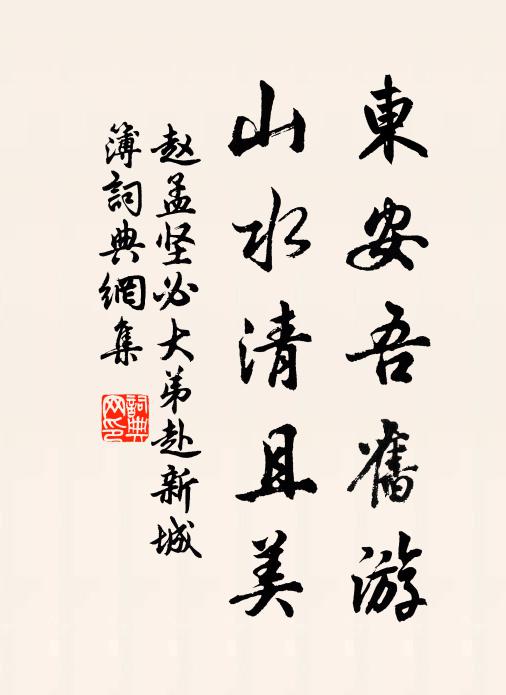 東安吾舊游
山水清且美
赵孟坚必大弟赴新城
簿詞典網集
詞典
网印